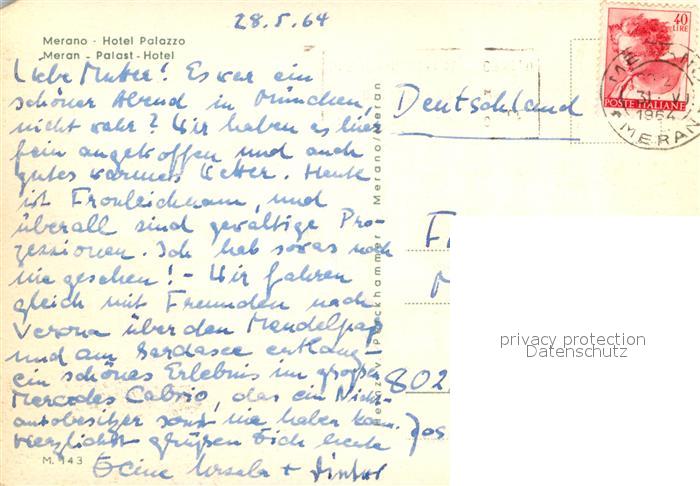 28.5.64
Merano - Hotel Palazzo
Meran - Palast-Hotel
Liebe Mutter! Es war ein
schöner Abend in München,
nicht wahr? Wir haben es hier
fein angetroffen und auch
gutes warmes Wetter. Heute
ist Fronleichnam, und
überall sind gewaltige Pro-
zessionen. Ich hab sowas noch
nie gesehen! - Wir fahren
gleich mit Freunden nach
Verona über den Mendelpaß
und am Gardasee entlang -
ein schönes Erlebnis im großen
Mercedes Cabrio, das ein Nicht-
autobesitzer sonst nie haben kann.
Herzlichst grüßen Dich heute
Deine Ursula +
M. 143
40
LIRE
POSTE ITALIANE
1964
MERAN
Deutschland
802
Jos
privacy protection
Datenschutz